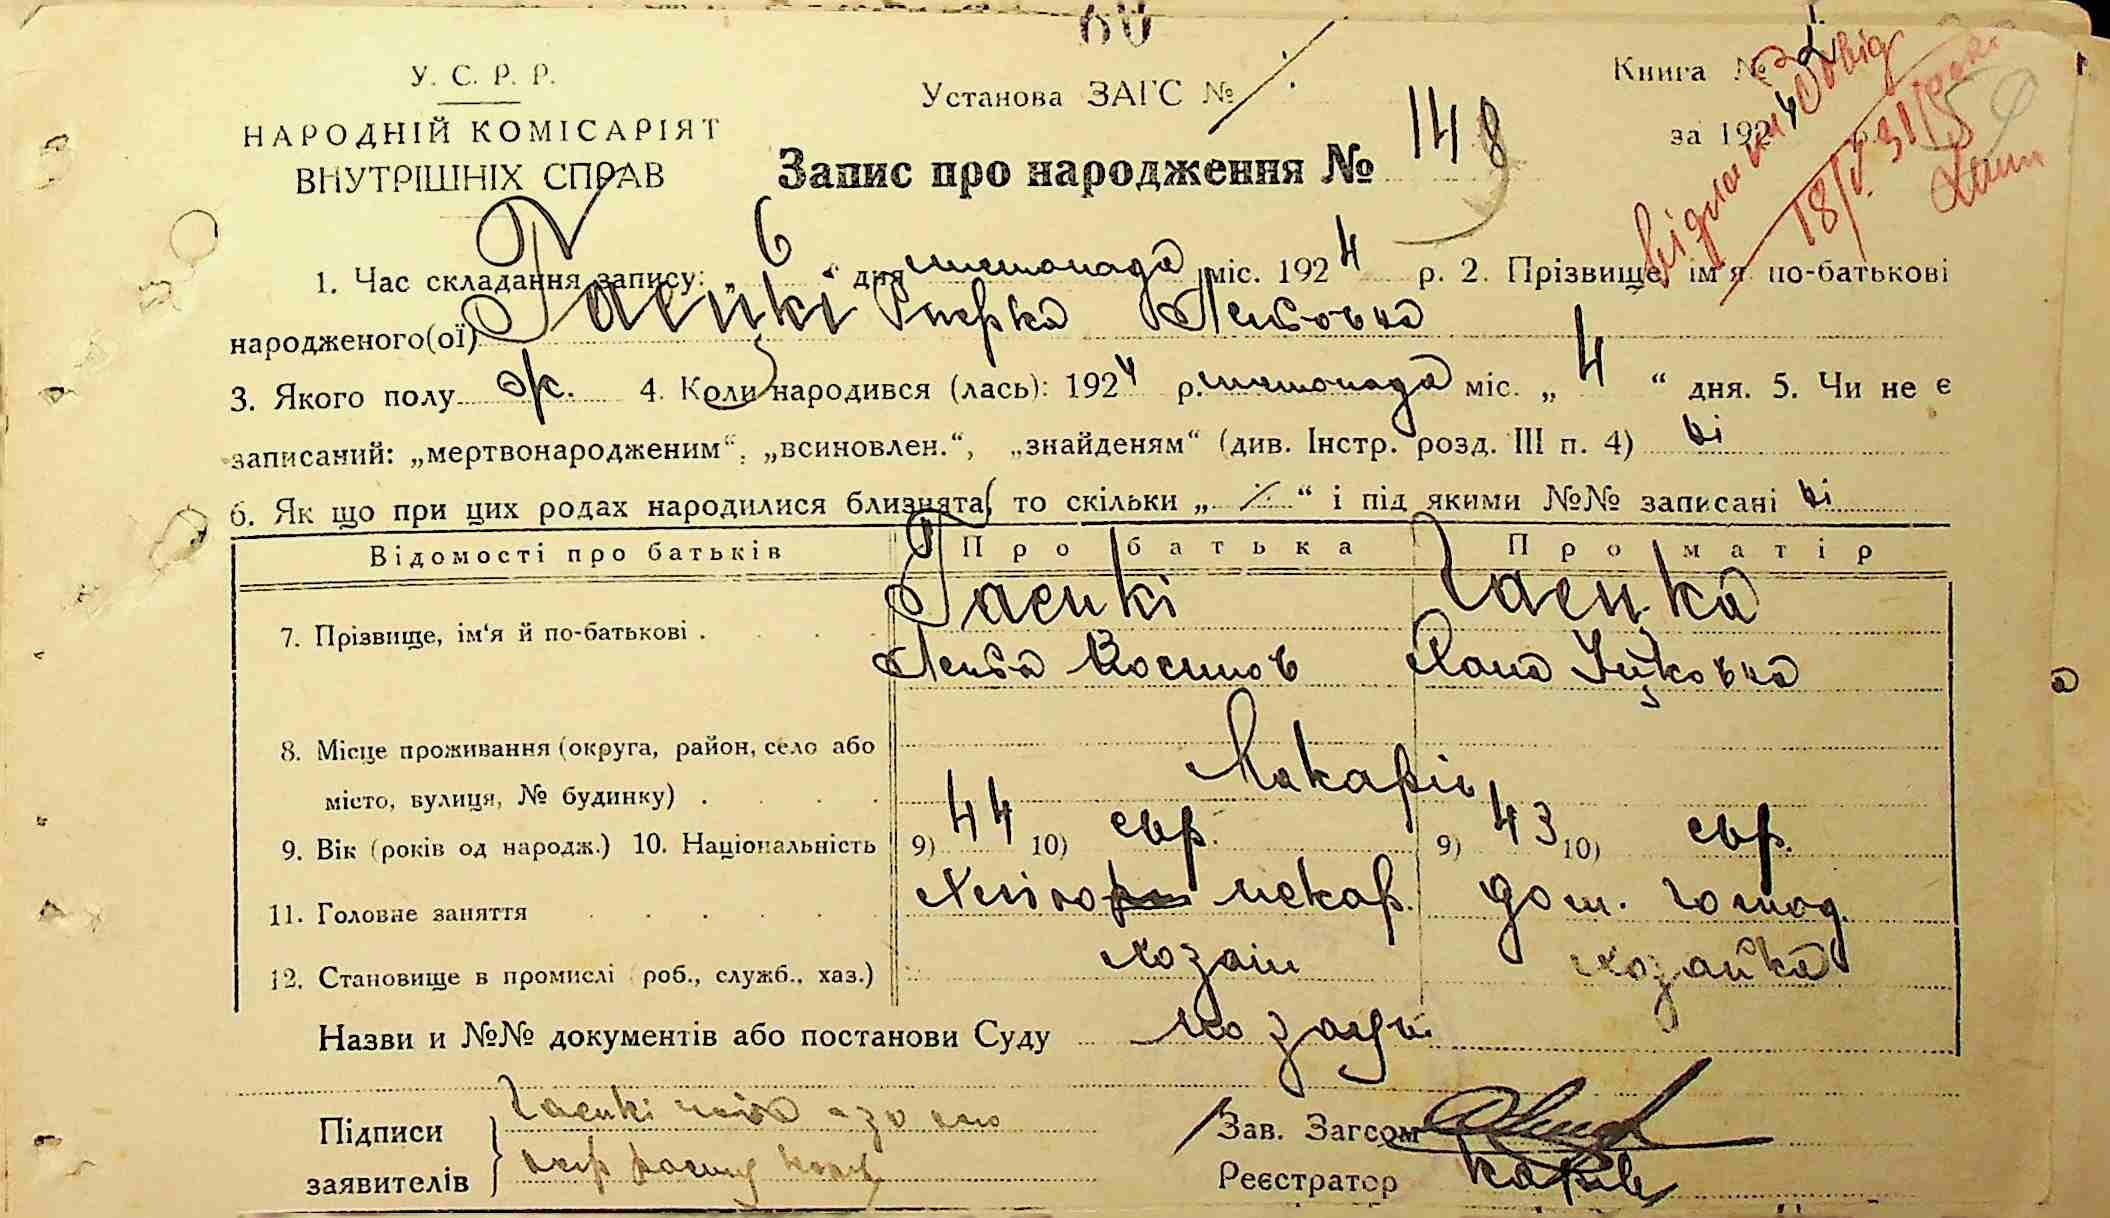 60
У. С. Р. Р.
НАРОДНІЙ КОМІСАРІЯТ
ВНУТРІШНІХ СПРАВ
Установа ЗАГС №
Книга №
за 1924
Запис про народження № 148
18/V 31
1. Час складання запису: „ 6 “ дня листопада міс. 1924 р. 2. Прізвище, ім'я по-батькові
народженого(ої) Гаєцкі Лейбовна
3. Якого полу ж. 4. Коли народився (лась): 1924 р. листопада міс. „ 4 “ дня. 5. Чи не є
записаний: „мертвонародженим“, „всиновлен.“, „знайденям“ (див. Інстр. розд. III п. 4) ні
6. Як що при цих родах народилися близнята, то скільки „ ·/· “ і під якими №№ записані ні
Відомості про батьків Про батька Про матір
7. Прізвище, ім‘я й по-батькові . Гаєцкі Гаєцка
Лейба Іосипов Хана Іцковна
8. Місце проживання (округа, район, село або
місто, вулиця, № будинку) . Макарів
9. Вік (років од народж.) 10. Національність 9) 44 10) євр. 9) 43 10) євр.
11. Головне заняття пекар. дом. господ.
12. Становище в промислі (роб., служб., хаз.) хозаін хозайка
Назви и №№ документів або постанови Суду
Підписи
заявителів
Гаєцкі
Зав. Загсом
Реєстратор